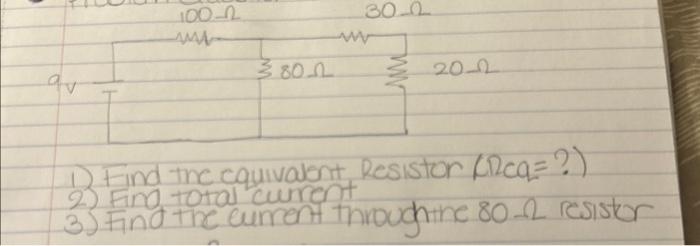 100-Ω 30-Ω
9v 80-Ω 20-Ω
1) Find the equivalent Resistor (Ωeq=?)
2) Find total current
3) Find the current through the 80-Ω resistor